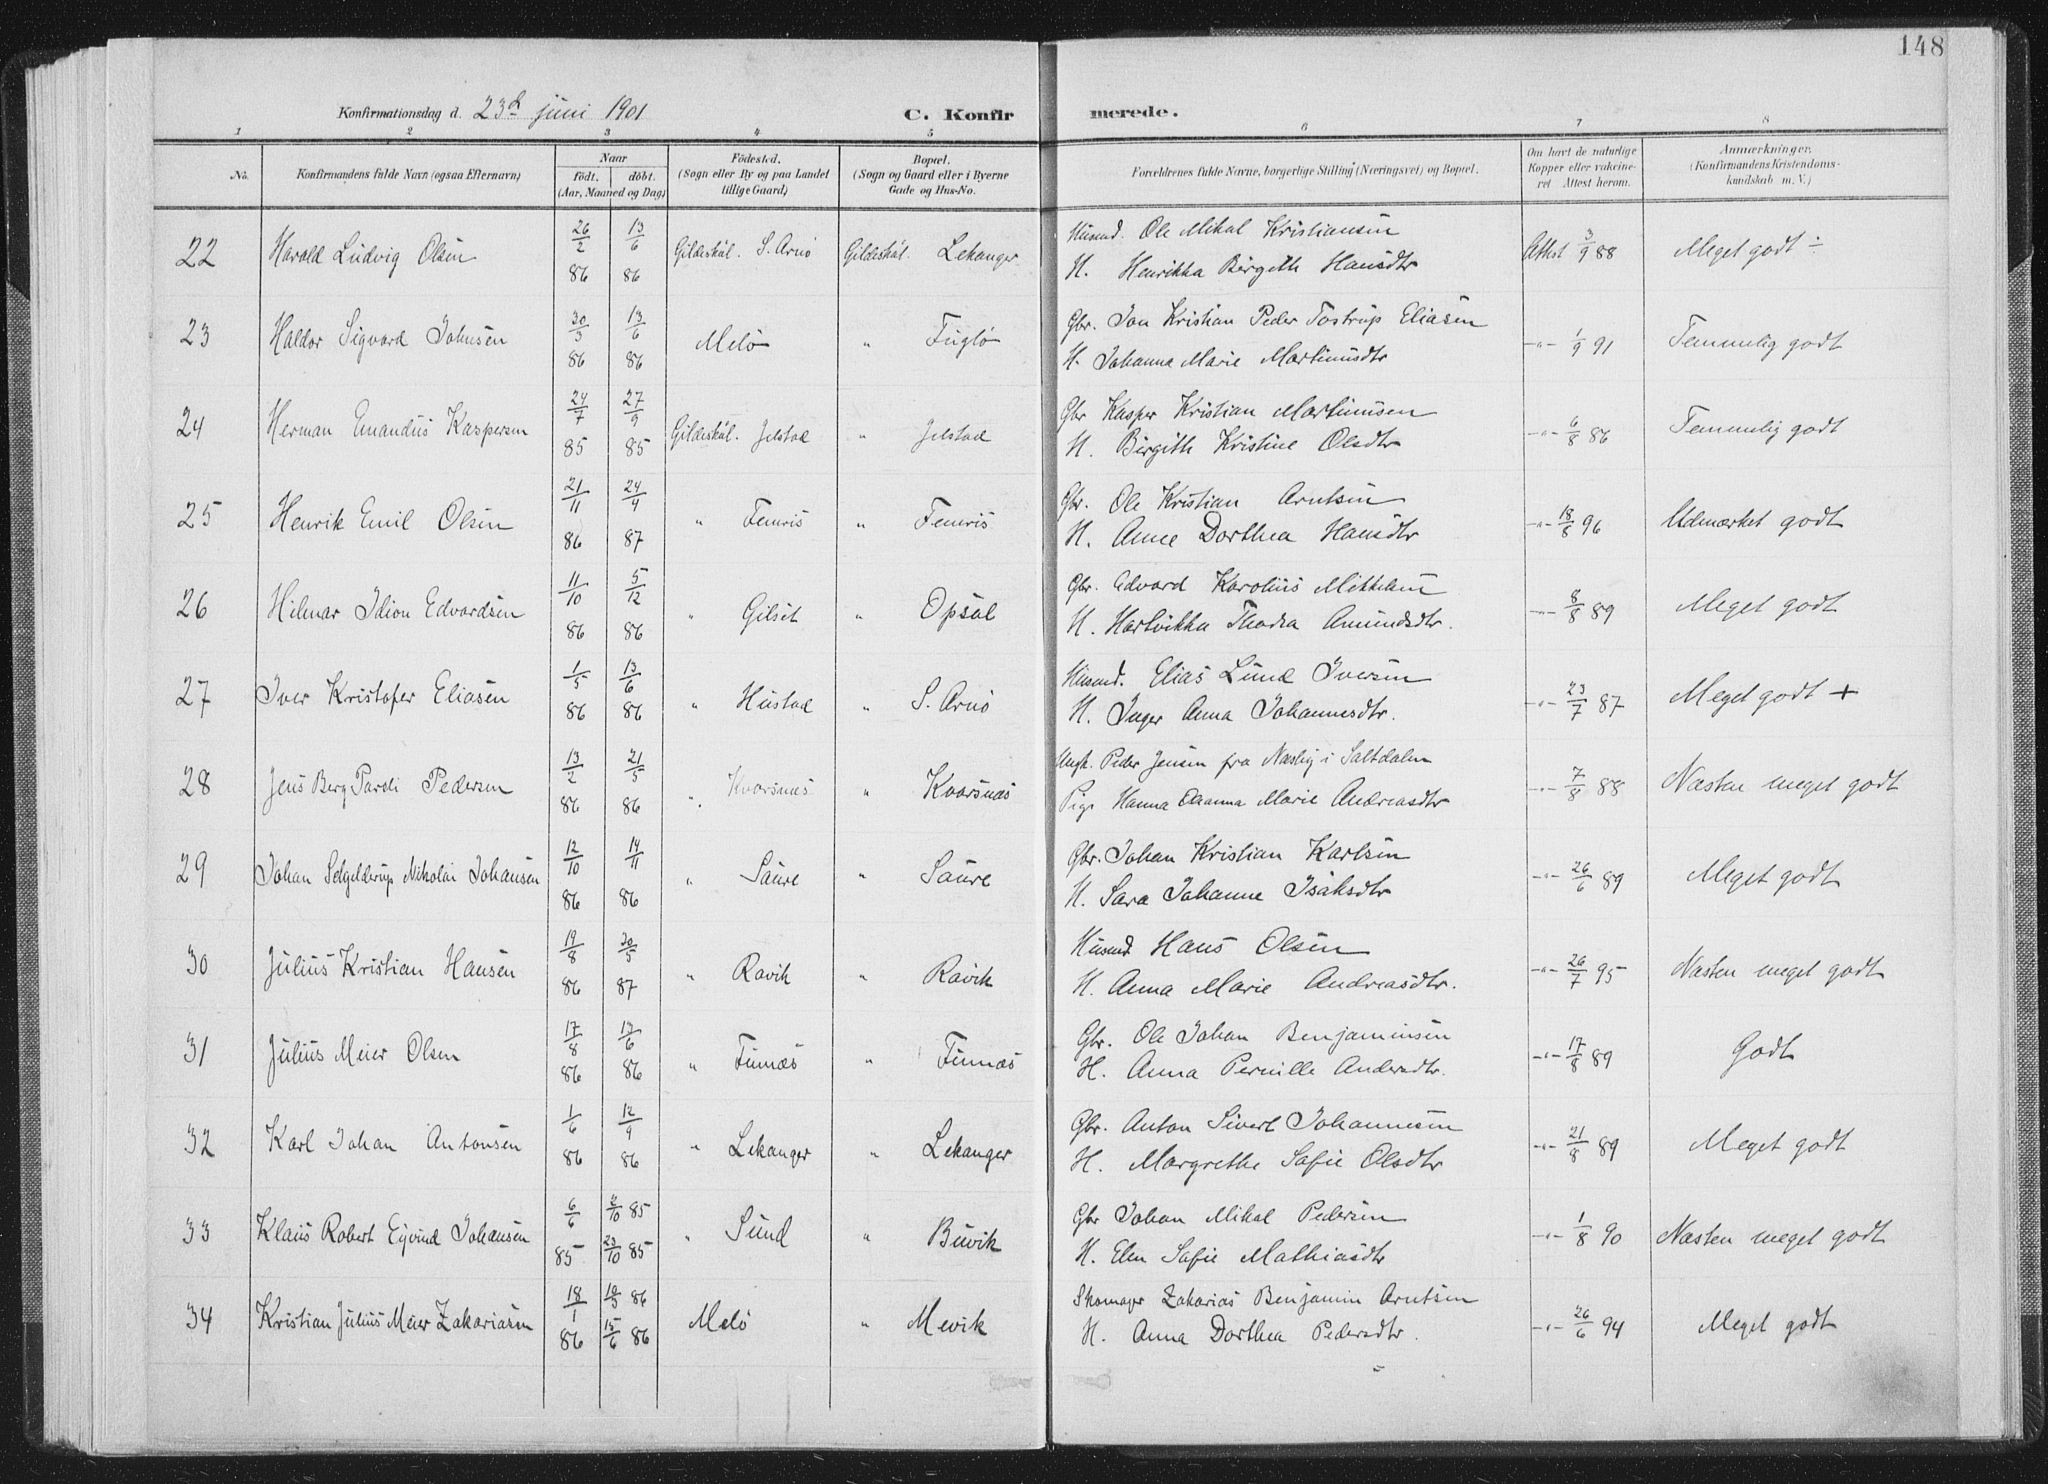 148
Konfirmationsdag d. 23d juni 1901 C. Konfirmerede.
1 2 3 4 5 6 7 8
No. Konfirmandens fulde Navn (ogsaa Efternavn) Naar født. døbt. (Aar, Maaned og Dag) Fødested. (Sogn eller By og paa Landet tillige Gaard) Bopæl. (Sogn og Gaard eller i Byerne Gade og Hus-No. Forældrenes fulde Navne, borgerlige Stilling (Næringsvei) og Bopæl. Om havt de naturlige Kopper eller vakcineret Attest herom. Anmærkninger. (Konfirmandens Kristendomskundskab m. V.)
22 Harald Ludvig Olsen 26/2 86 13/6 86 Gildeskål. S. Arnø Gildeskål. Lekanger Husmd. Ole Mikal Kristiansen Attest 3/9 88 Meget godt ÷
H. Henrikka Birgith Hansdtr
23 Haldor Sigvard Johnsen 30/3 86 13/6 86 Melø " Fuglø Gbr. Jon Kristian Peder Tostrup Eliasen -"- 1/9 91 Temmelig godt
H. Johanna Marie Martinusdtr
24 Herman Emandus Kaspersen 24/7 85 27/9 85 Gildeskål. Jelstad " Jelstad Gbr Kasper Kristian Martinusen -"- 6/8 86 Temmelig godt
H. Birgith Kristine Olsdtr
25 Henrik Emil Olsen 21/11 86 24/4 87 " Femris " Femris Gbr. Ole Kristian Arntsen -"- 18/8 96 Udmærket godt
H. Anne Dorthea Hansdtr
26 Hilmar Idion Edvardsen 11/10 86 5/12 86 " Gilset " Opsal Gbr. Edvard Karolius Mikkelsen -"- 8/8 89 Meget godt
H. Hartvikka Thodra Amundsdtr.
27 Iver Kristofer Eliasen 1/5 86 13/6 86 " Hustad " S. Arnø Husmd. Elias Lund Iversen -"- 23/7 87 Meget godt +
H. Inger Anna Johannesdtr.
28 Jens Berg Pardi Pedersen 13/2 86 21/5 86 " Kvarsnes " Kvarsnæs Ungk. Peder Jensen fra Næsby i Saltdalen -"- 7/8 88 Næsten meget godt
Pige Hanna Elianna Marie Andreasdtr
29 Johan Selgelderup Nikolai Johansen 12/10 86 14/11 86 " Saure " Saure Gbr. Johan Kristian Karlsen -"- 26/6 89 Meget godt
H. Sara Johanne Isaksdtr
30 Julius Kristian Hansen 19/8 86 30/5 87 " Ravik " Ravik Husmd Hans Olsen -"- 26/7 95 Næsten meget godt
H. Anna Marie Andreasdtr.
31 Julius Meier Olsen 17/8 86 13/6 86 " Finnæs " Finnæs Gbr. Ole Johan Benjaminsen -"- 17/8 89 Godt
H. Anna Pernille Andersdtr.
32 Karl Johan Antonsen 1/6 86 12/9 86 " Lekanger " Lekanger Gbr. Anton Sivert Johannesen -"- 21/8 89 Meget godt
H. Margrethe Sofie Olsdtr
33 Klaus Robert Eyvind Johansen 6/6 85 2/10 85 23/10 85 " Sund " Buvik Gbr Johan Mikal Pedersen -"- 1/8 90 Næsten meget godt
H. Elen Sofie Mathiasdtr
34 Kristian Julius Meier Zakariasen 18/1 86 10/3 86 15/6 86 Melø " Mevik Skomager Zakarias Benjamin Arntsen -"- 26/6 94 Meget godt
H. Anna Dorthea Pedersdtr.